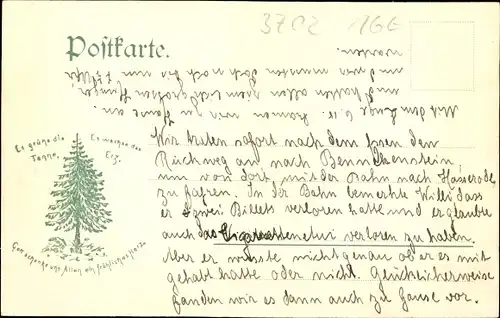 3702 16E
Postkarte.
Es grüne die Tanne,
Es wachse das Erz,
Gott schenke uns Allen ein fröhliches Herz.
Wir traten sofort nach dem Essen den
Rückweg an nach Bennekenstein,
um von dort, mit der Bahn nach Hasserode
zu fahren. In der Bahn bemerkte Willi dass
er zwei Billets verloren hatte und er glaubte
auch das Cigarettenetui verloren zu haben.
Aber er wusste nicht genau ob er es mit
gehabt hatte oder nicht. Glücklicherweise
fanden wir es dann auch zu Hause vor.
Mit dem Zuge 6.11 kamen wir zu Hause an.
und hatten alle großen Hunger,
und wir mussten doch noch bis um 7½ Uhr
warten.